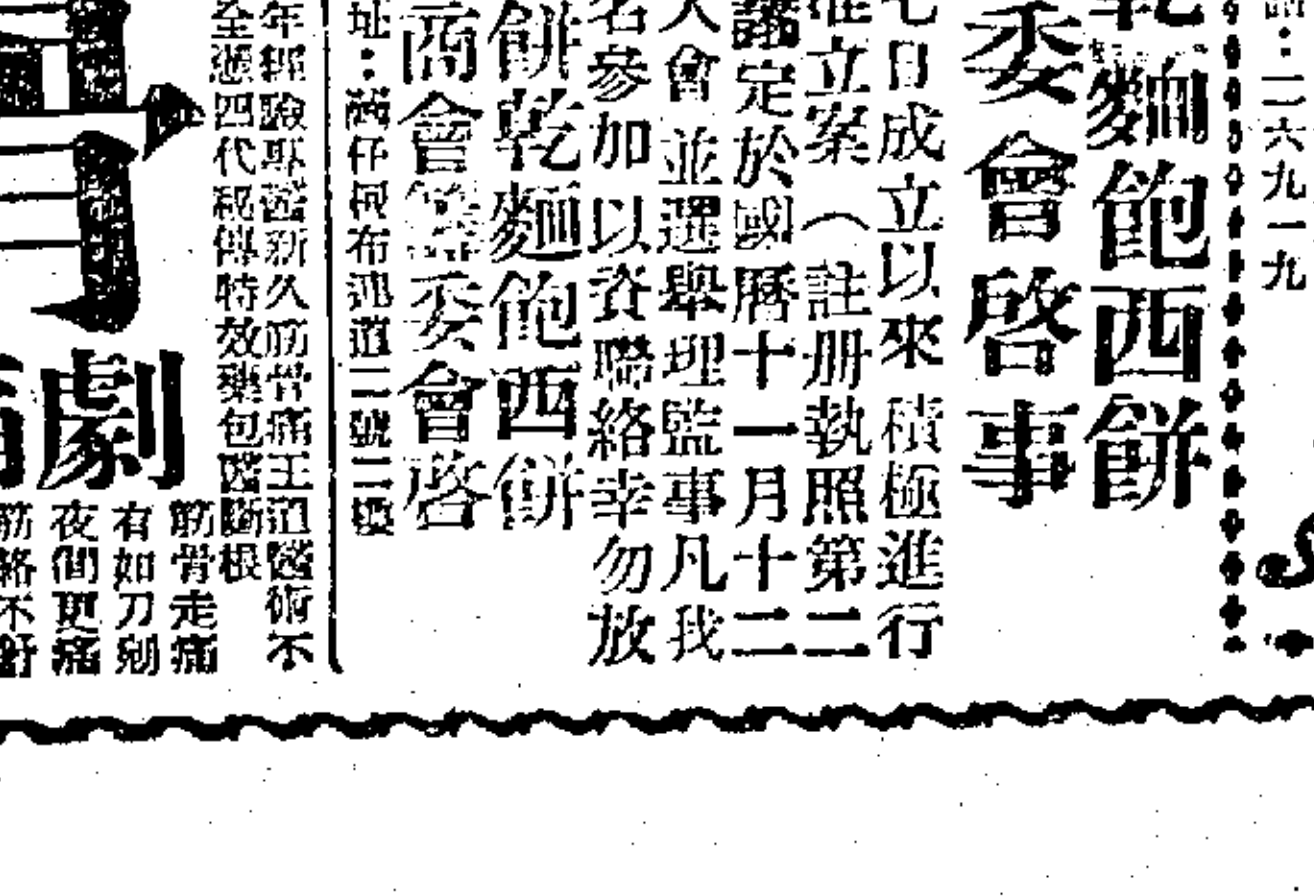 話：二六九一九
乾麵飽西餅
委會啓事
七日成立以來積極進行
准立案（註册執照第二
議定於國曆十一月十二
大會並選舉理監事凡我
名參加以資聯絡幸勿放
餅乾麵飽西餅
商會籌委會啓
址：灣仔柯布連道二號二樓
年經驗專醫新久筋骨痛王道醫術不
全憑四代秘傳特效藥包醫斷根
劇
筋骨走痛
有如刀剜
夜間更痛
筋絡不舒